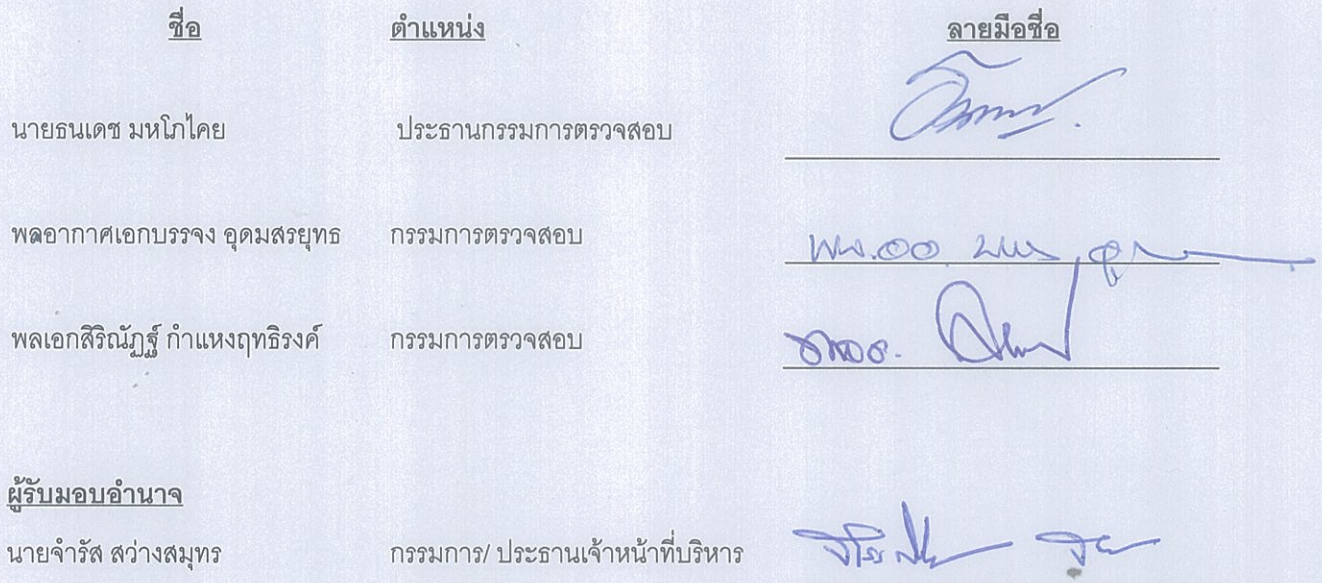 ชื่อ ตำแหน่ง ลายมือชื่อ
นายธนเดช มหโภไคย ประธานกรรมการตรวจสอบ
พลอากาศเอกบรรจง อุดมสรยุทธ กรรมการตรวจสอบ
พลเอกสิริณัฏฐ์ กำแหงฤทธิรงค์ กรรมการตรวจสอบ
ผู้รับมอบอำนาจ
นายจำรัส สว่างสมุทร กรรมการ/ ประธานเจ้าหน้าที่บริหาร